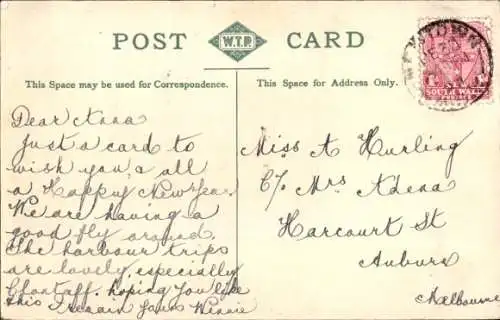 POST CARD
W.T.P.
This Space may be used for Correspondence.
This Space for Address Only.
SOUTH WALES
Dear Anna
Just a card to
wish you & all
a Happy New Year
We are having a
good fly around.
The harbour trips
are lovely, especially
Chontaff, hoping you like
this I remain yours Winnie
Miss A Hurling
C/o Mrs Adena
Harcourt St
Auburn
Melbourne